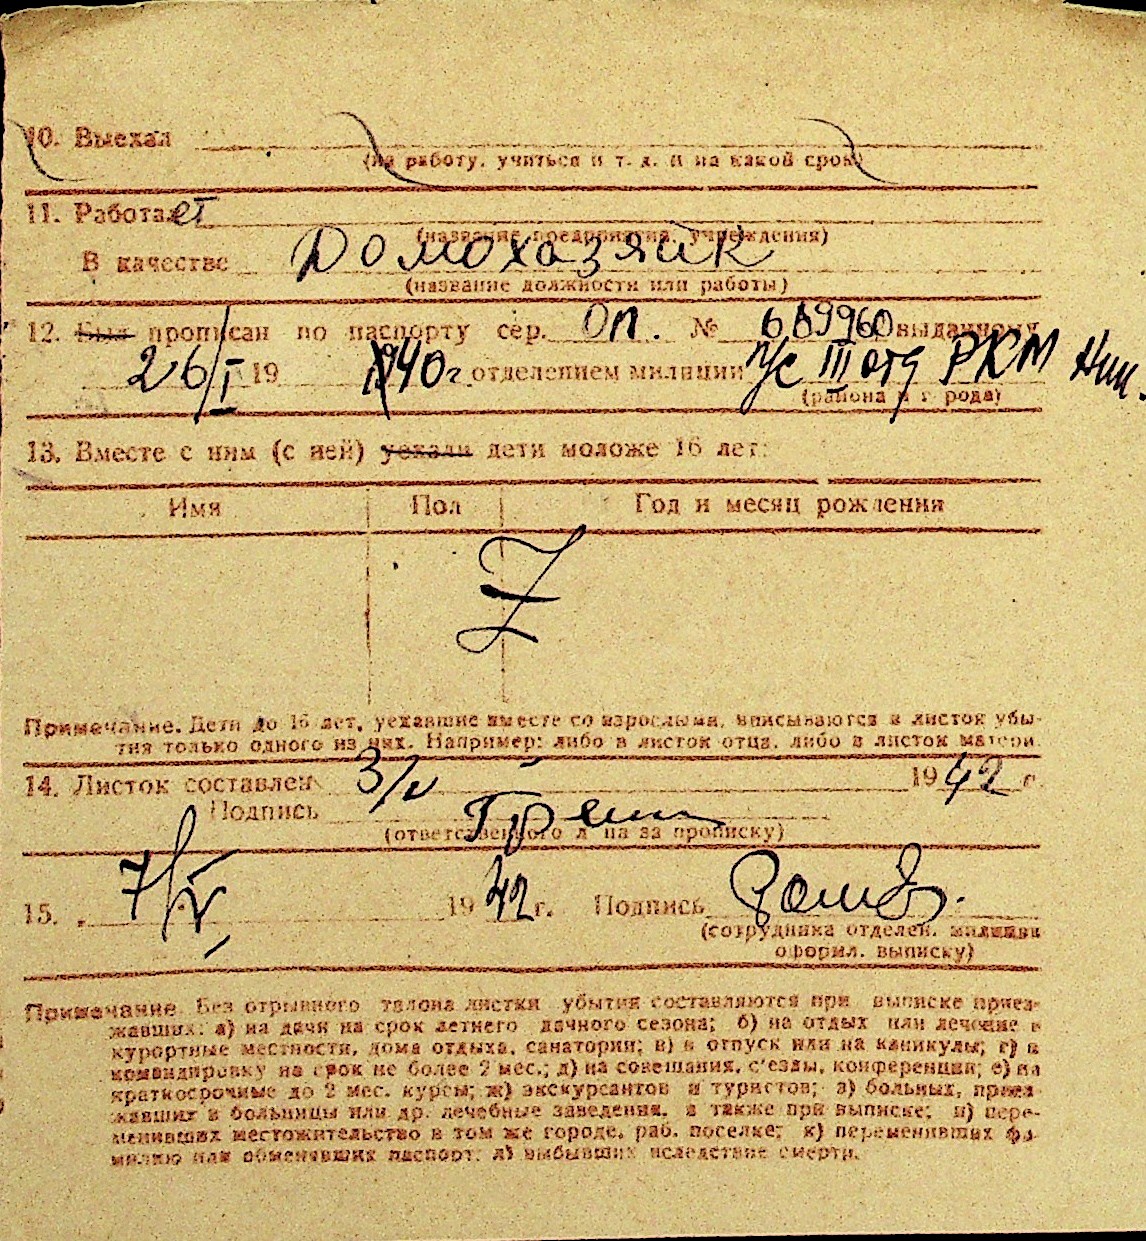 10. Выехал
(на работу, учиться и т. д. и на какой срок)
11. Работает
(название предприятия, учреждения)
В качестве Домохазяйк
(название должности или работы)
12. Был прописан по паспорту сер. ОП. № 669960 выданному
26/I 19 1940 г. отделением милиции п/с III отд РКМ
(района и города)
13. Вместе с ним (с ней) уехали дети моложе 16 лет:
Имя Пол Год и месяц рождения
Z
Примечание. Дети до 16 лет, уехавшие вместе со взрослыми, вписываются в листок убы-
тия только одного из них. Например: либо в листок отца, либо в листок матери.
14. Листок составлен 3/V 1942 г.
Подпись
(ответственного лица за прописку)
15. 7/V 1942 г. Подпись
(сотрудника отделен. милиции
оформл. выписку)
Примечание. Без отрывного талона листки убытия составляются при выписке приез-
жавших: а) на дачи на срок летнего дачного сезона; б) на отдых или лечение в
курортные местности, дома отдыха, санатории; в) в отпуск или на каникулы; г) в
командировку на срок не более 2 мес.; д) на совещания, с'езды, конференции; е) на
краткосрочные до 2 мес. курсы; ж) экскурсантов и туристов; з) больных, приез-
жавших в больницы или др. лечебные заведения, а также при выписке; и) пере-
менивших местожительство в том же городе, раб. поселке; к) переменивших фа-
милию или обменявших паспорт; л) выбывших вследствие смерти.